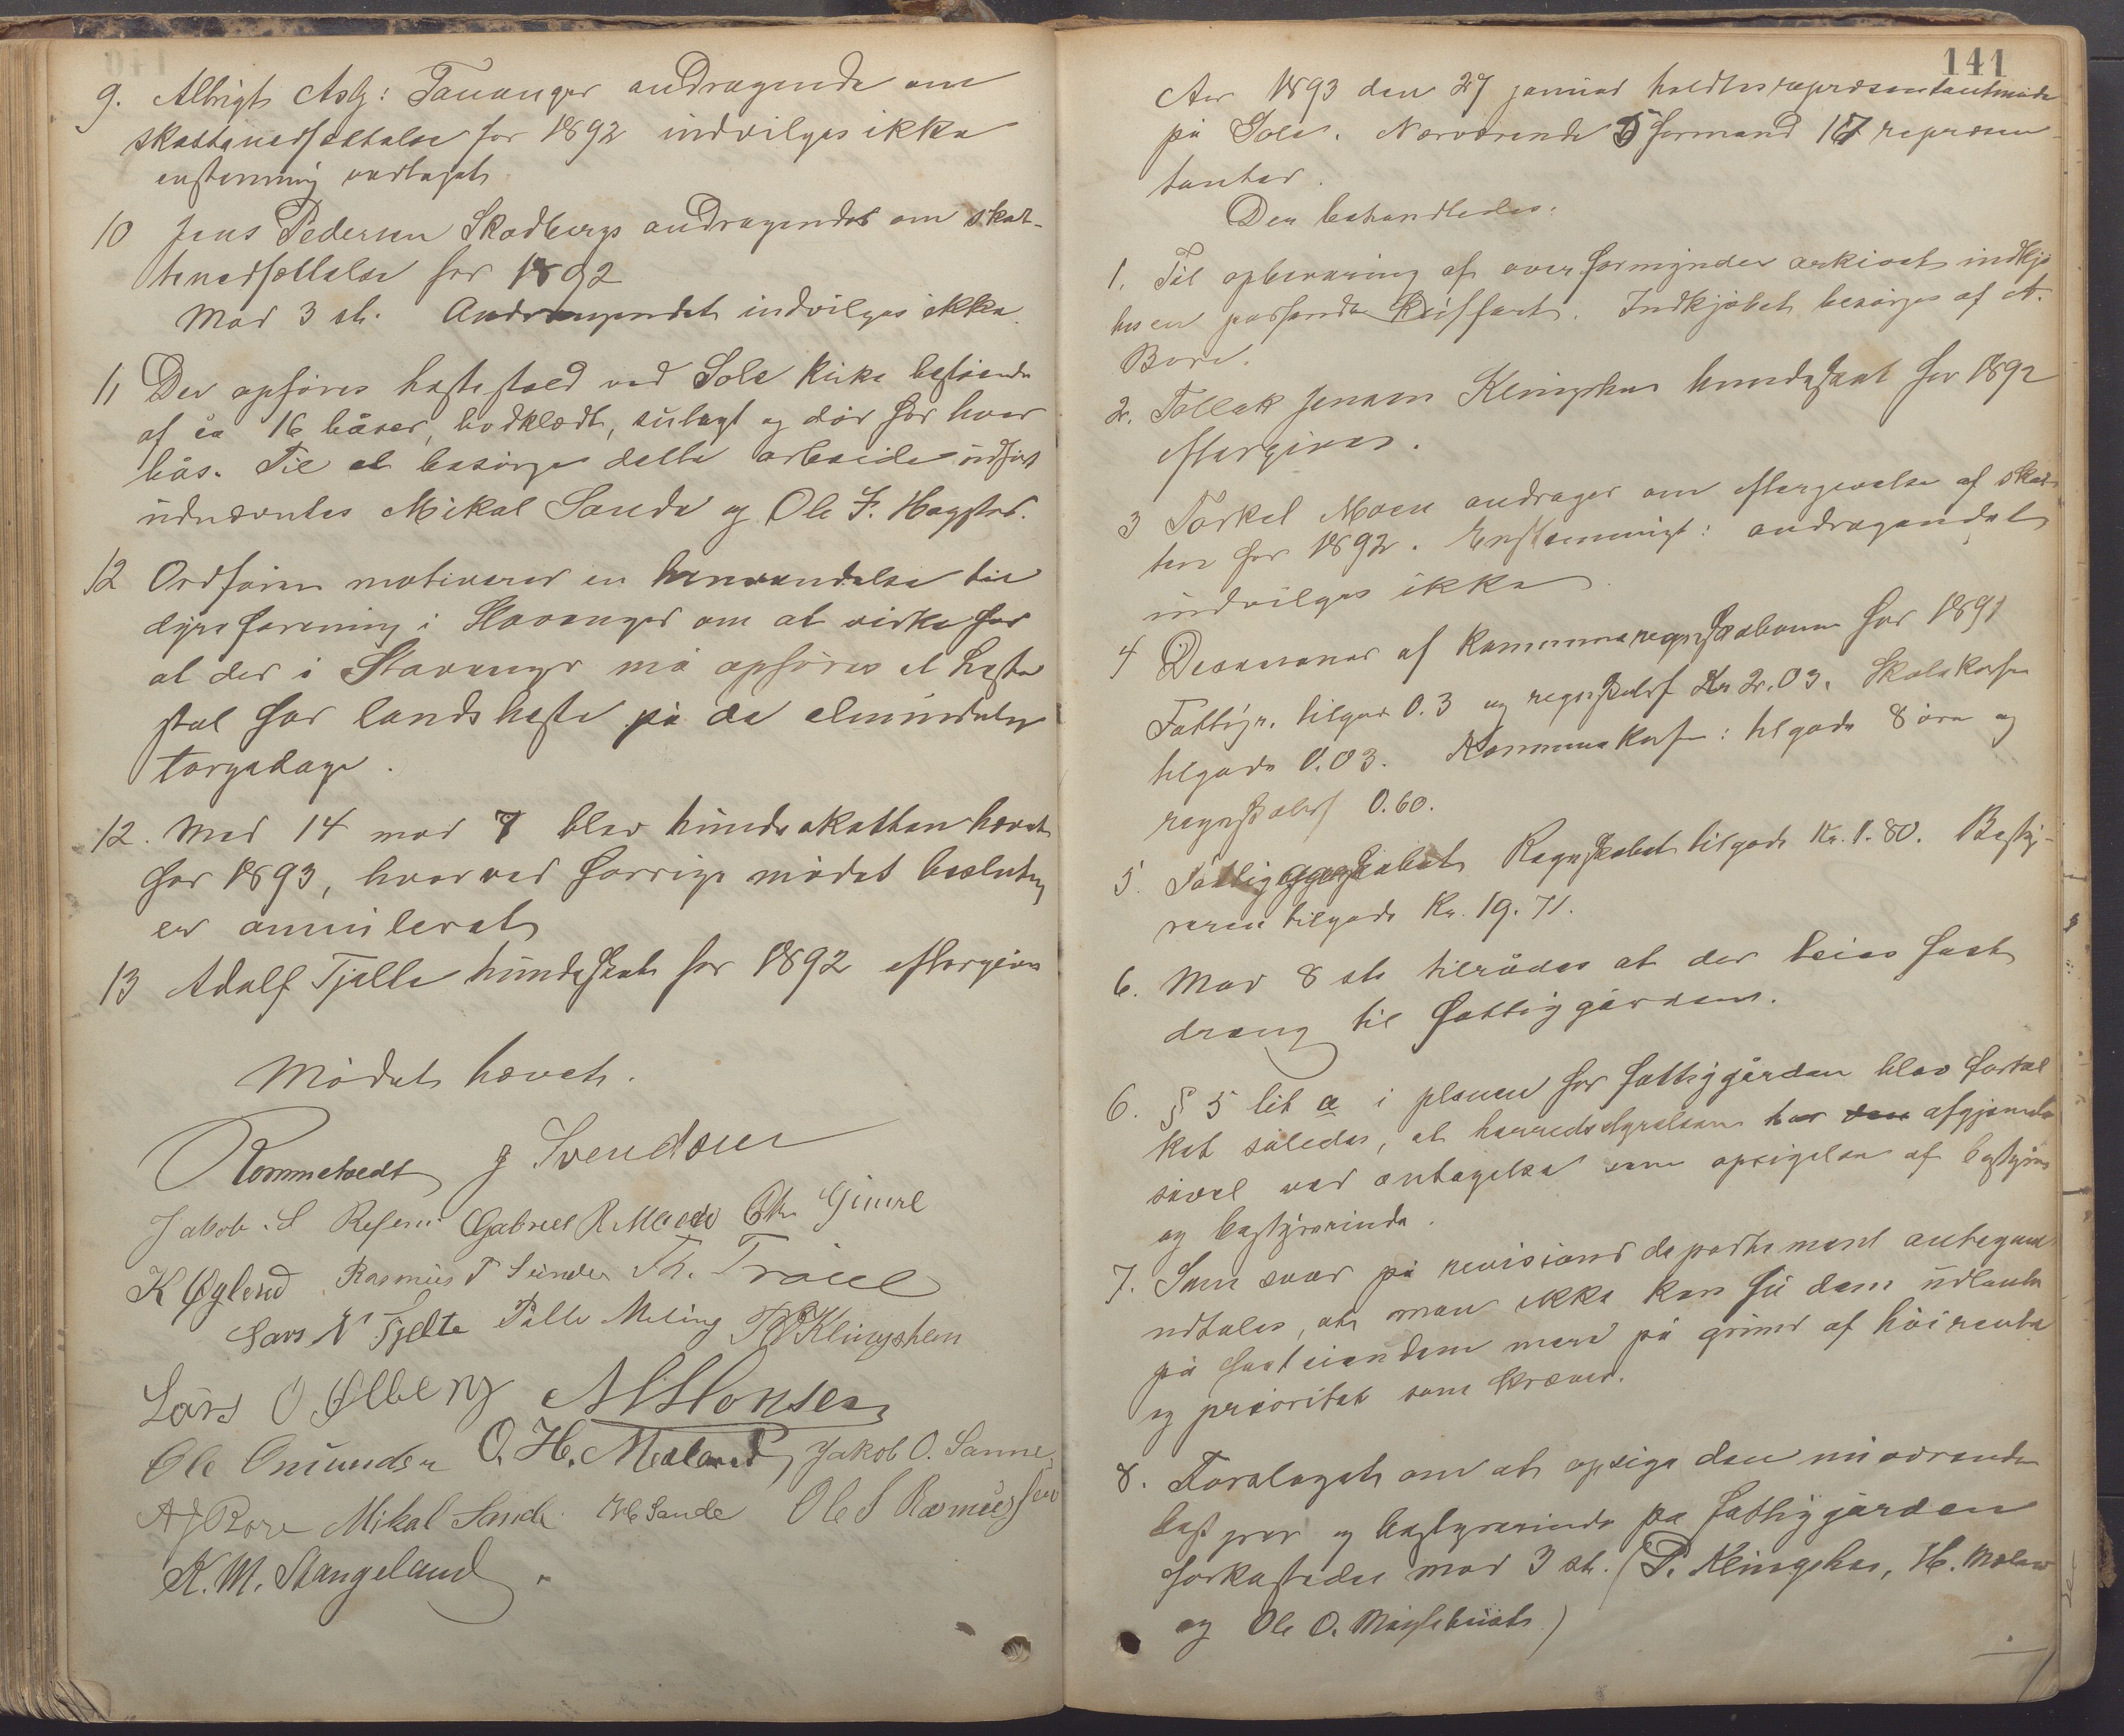 9. Albrigt Asbj: Tananger andragende om
skattenedsættelse for 1892 indvilges ikke
enstemmig vedtaget
10 Jens Pedersen Skadbergs andragendet om skat-
tenedsættelse for 1892
Mod 3 st. Andragendet indvilges ikke.
11 Der opføres hestestald ved Sole kirke bestående
af ca 16 båser, bordklædt, sulagt og dør for hver
bås. Til at besørge dette arbeide udført
udnævntes Mikal Sande og Ole J. Hogstad.
12 Ordføren motiverer en henvendelse til
dyreforening i Stavanger om at virke for
at der i Stavanger må opføres et heste
stal for landsheste på de almindelige
torgedage.
12. Med 14 mod 7 blev hundeskatten hævet
for 1893, hvorved forrige mødes beslutning
er annuleret
13 Adolf Tjelta hundeskat for 1892 eftergives
Mødet hævet.
Rommetvedt J Svendsen
Jakob. S Resen Gabriel R Meedo Gimre
K Øglend Rasmus T Sunde Th. Traae
Lars N Tjelte Tølle Meling Klingshem
Lars O Ølberg A Monsen
Ole Omundsen O. H. Meland Jakob O. Sanne
A J Bore Mikal Sande H Sande Ole S Rasmussen
K. M. Stangeland
141
Aar 1893 den 27 januar holdtes repræsentantmøde
på Sole. Nærværende 5 formænd 17 repræsen-
tanter.
Der behandledes:
1. Til opbevaring af overformynder arkivet indkjø
bes en passende kuffert. Indkjøbet besørges af A.
Bore.
2. Tollak Jensen Klingshei hundeskat for 1892
eftergives.
3 Torkel Moen andrager om eftergivelse af skat-
ten for 1892. Enstemmigt: andragendet
indvilges ikke
4 Decisioner af Kommuneregnskaberne for 1891
Fattigv. tilgode 0.3 og regnskabsf Kr 2.03. Skolekassen
tilgode 0.03. Kommunekassen: tilgode 8 øre og
regnskabsf 0.60.
5. Fattiggårdsregnskabet Regnskabet tilgode Kr. 1.80. Besty-
reren tilgode Kr. 19.71.
6. Mod 8 st. tilrådes at der leies fast
dreng til fattiggården.
6. § 5 lit a i planen for fattiggården blev fortol
ket således, at herredsstyrelsen har den afgjørende
såvel ved antagelse som opsigelse af bestyrer
og bestyrerinde.
7. Som svar på revisions departement antegnelse
udtales, at man ikke kan få dem udlaante
på fasteiendom mere på grund af høi rente
og prioritet som kræves.
8. Forslaget om at opsige den nuværende
bestyrer og bestyrerinde på fattiggården
forkastedes mod 3 st. (P. Klingshei, H. Meland
og Ole O. Myklebust)